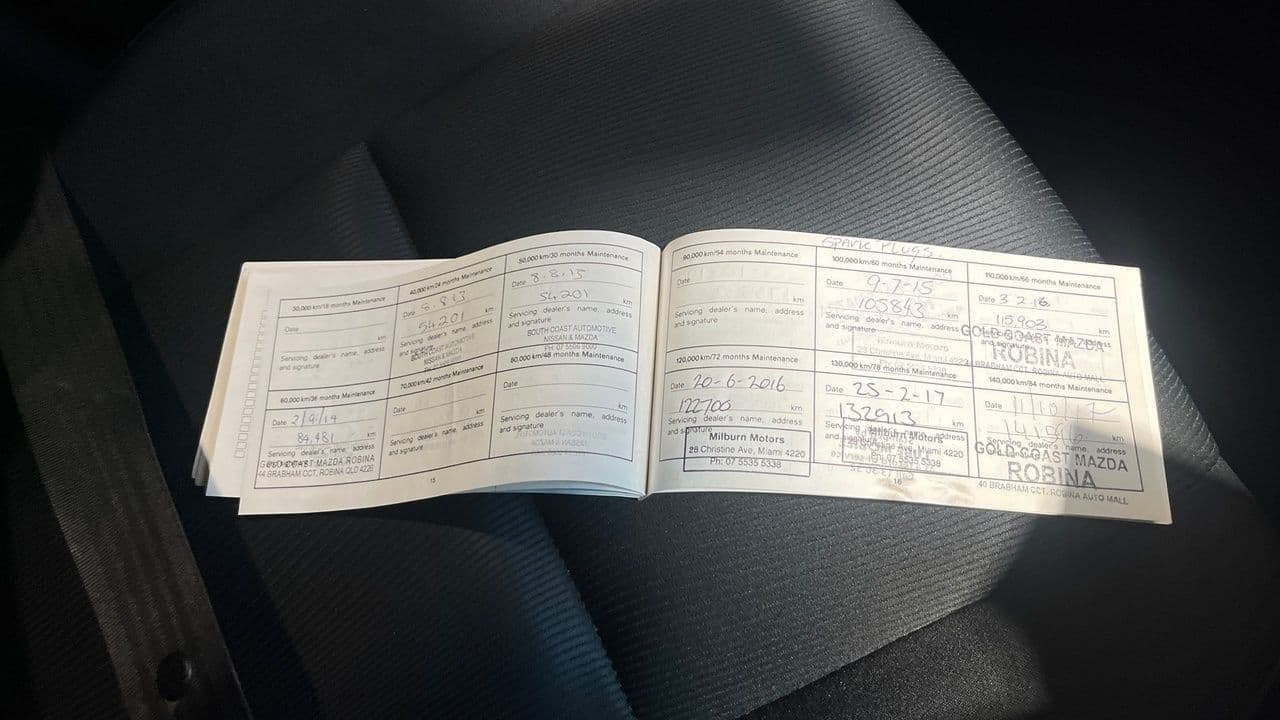 30,000 km/18 months Maintenance
Date
km
Servicing dealer's name, address
and signature
40,000 km/24 months Maintenance
Date 8.8.13
54201 km
Servicing dealer's name, address
and signature
SOUTH COAST AUTOMOTIVE
NISSAN & MAZDA
50,000 km/30 months Maintenance
Date 8.8.13
54201 km
Servicing dealer's name, address
and signature
SOUTH COAST AUTOMOTIVE
NISSAN & MAZDA
60,000 km/36 months Maintenance
Date 2/9/14
84,481 km
Servicing dealer's name, address
and signature
GOLD COAST MAZDA ROBINA
44 BRABHAM CCT, ROBINA QLD 4226
70,000 km/42 months Maintenance
Date
km
Servicing dealer's name, address
and signature
80,000 km/48 months Maintenance
Date
km
Servicing dealer's name, address
and signature
15
90,000 km/54 months Maintenance
Date
km
Servicing dealer's name, address
and signature
SPARK PLUGS.
100,000 km/60 months Maintenance
Date 9-7-15
105843 km
Servicing dealer's name, address
and signature
Milburn Motors
28 Christine Ave, Miami 4220
110,000 km/66 months Maintenance
Date 3 2 16
115903 km
GOLD COAST MAZDA
ROBINA
BRABHAM CCT. ROBINA AUTO MALL
120,000 km/72 months Maintenance
Date 20-6-2016
122700 km
Servicing dealer's name, address
and signature
Milburn Motors
28 Christine Ave, Miami 4220
Ph: 07 5535 5338
130,000 km/78 months Maintenance
Date 25-2-17
132913 km
Servicing dealer's name, address
Milburn Motors
Christine Ave, Miami 4220
Ph: 07 5535 5338
140,000 km/84 months Maintenance
Date
km
Servicing dealer's name, address
GOLD COAST MAZDA
ROBINA
40 BRABHAM CCT. ROBINA AUTO MALL
16